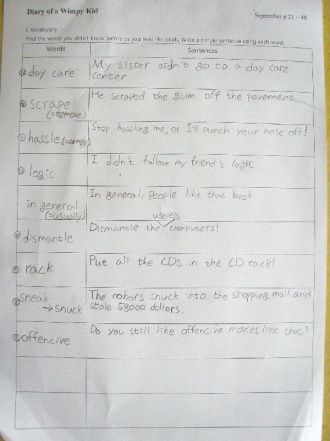 Diary of a Wimpy Kid
September p.21 - 48
I. Vocabulary
Find the words you didn't know before as you read the book. Write a simple sentence using each word.
Words
Sentences
day care
My sister didn't go to a day care
center
scrape
(=remove)
He scraped the gum off the pavement.
hassle
Stop hassling me, or I'll punch your nose off!
logic
I didn't follow my friend's logic
in general
(=usually)
In general, people like that book
useless
dismantle
Dismantle the computers!
rack
Put all the CDs in the CD rack!
sneak
→ snuck
The robors snuck into the shopping mall and
stole 58000 dollars.
offencive
Do you still like offencive like that?